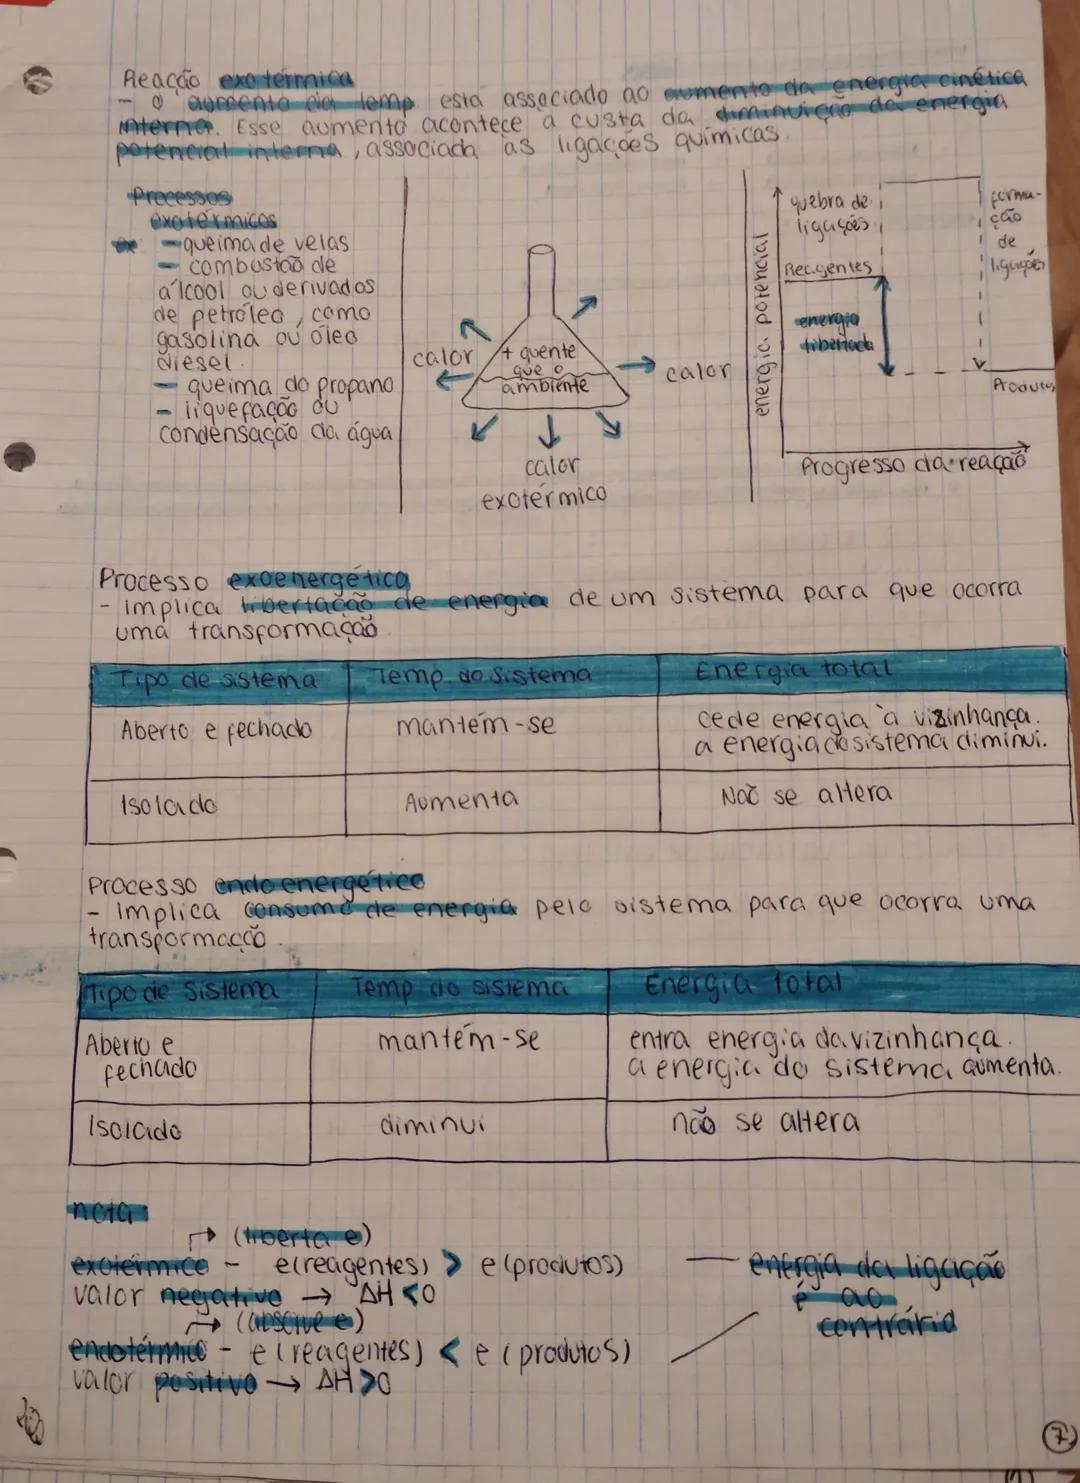 Reação exotérmica
- o aumento da temp está associado ao aumento da energia cinética
interna. Esse aumento acontece à custa da diminuição da energia
potencial interna, associada às ligações químicas.
Processos
exotérmicos
ex - queima de velas
- combustão de
álcool ou derivados
de petróleo, como
gasolina ou óleo
diesel.
- queima do propano
- liquefação ou
condensação da água
calor
+ quente
que o
ambiente
calor
calor
exotérmico
energia potencial
quebra de
ligações
Reagentes
energia
libertada
forma-
ção
de
ligações
Produtos
Progresso da reação
Processo exoenergético
- implica libertação de energia de um sistema para que ocorra
uma transformação.
Tipo de sistema Temp. do sistema Energia total
Aberto e fechado mantém-se cede energia à vizinhança.
a energia do sistema diminui.
Isolado Aumenta Não se altera
Processo endoenergético
- implica consumo de energia pelo sistema para que ocorra uma
transformação.
Tipo de sistema Temp do sistema Energia total
Aberto e
fechado mantém-se entra energia da vizinhança.
a energia do sistema aumenta.
Isolado diminui não se altera
nota:
→ (liberta e)
exotérmico - e(reagentes) > e(produtos)
valor negativo → ΔH <0
→ (absorve e)
endotérmico - e(reagentes) < e(produtos)
valor positivo → ΔH >0
energia da ligação
é ao
contrário
7